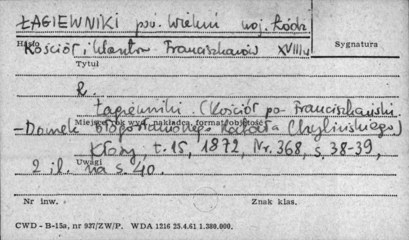 ŁAGIEWNIKI pow. Wieluń woj. Łódź
Hasło
Kościół i klasztor Franciszkanów XVIII w
Sygnatura
Tytuł
R.
Łagiewniki. (Kościół po-Franciszkański
Miejsce, rok wyd., nakładca, format, objętość
– Domek błogosławionego Rafała Chylińskiego)
Kłosy t. 15, 1872, Nr. 368, s. 38-39,
Uwagi
2 il. na s. 40.
Nr inw.
Znak klas.
CWD - B-15a, nr 937/ZW/P. WDA 1216 25.4.61 1.380.000.